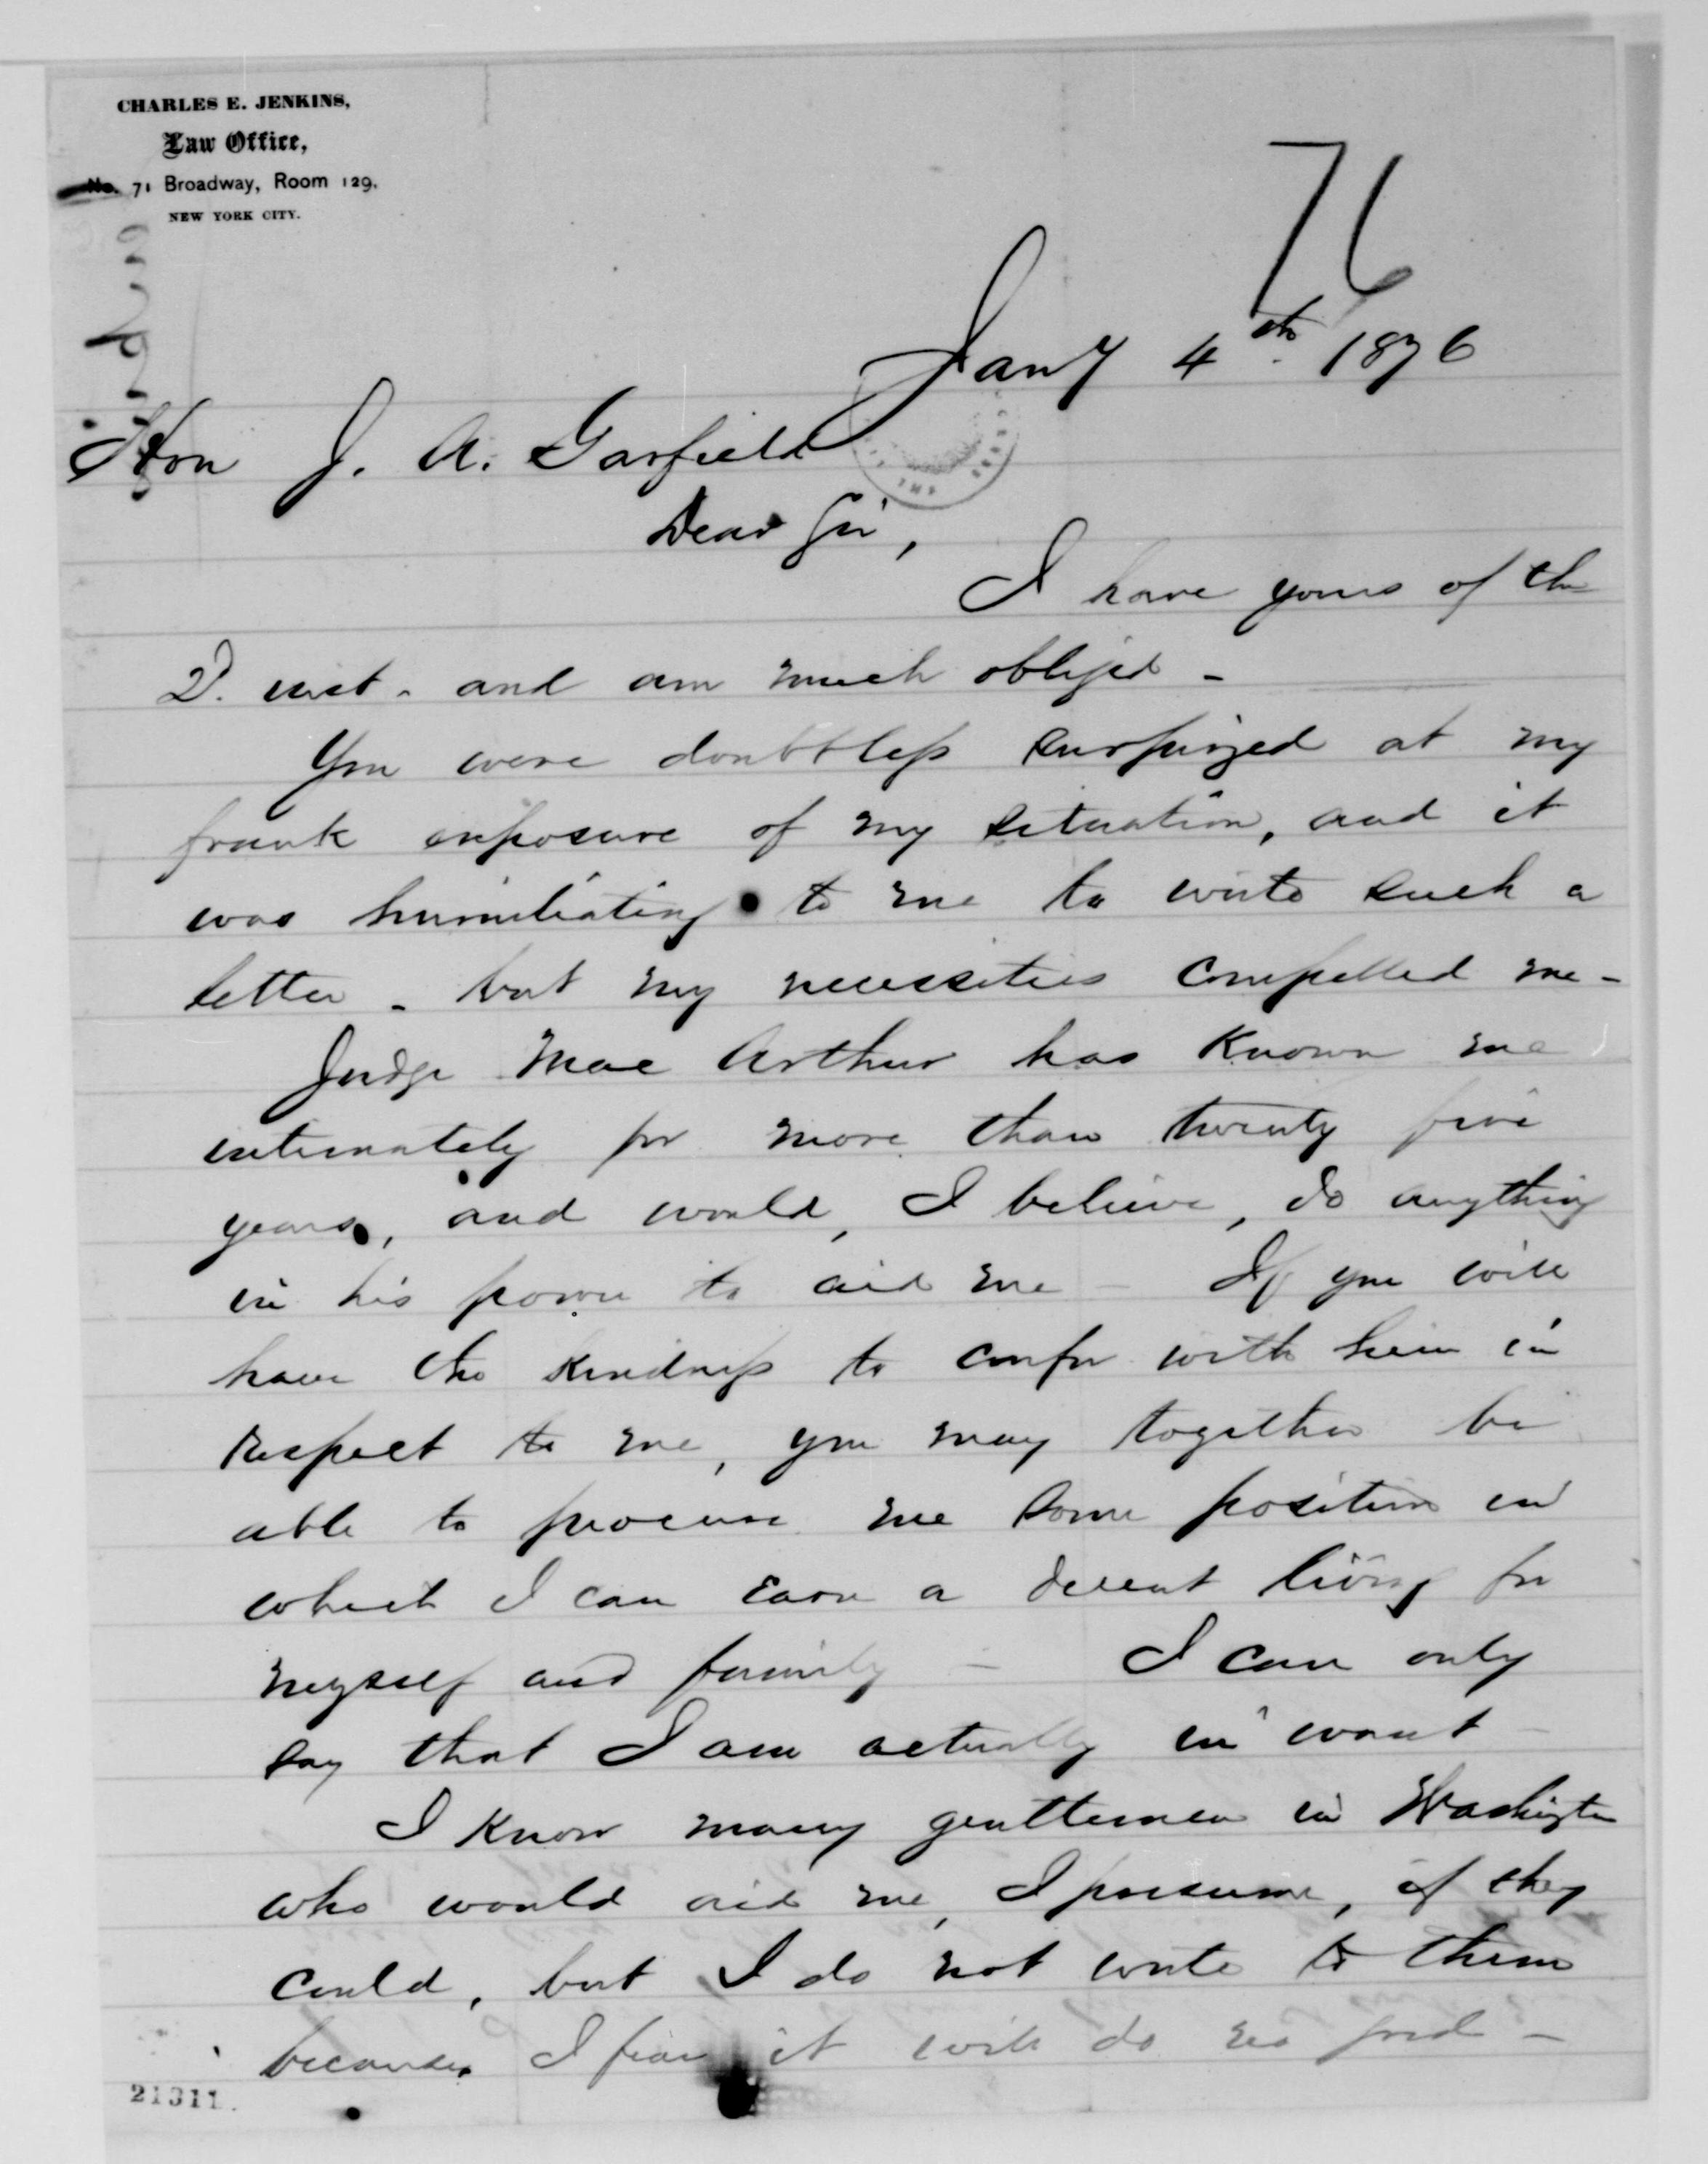 CHARLES E. JENKINS,
Law Office,
No. 71 Broadway, Room 129,
NEW YORK CITY.
76
Jany 4th. 1876
Hon J. A. Garfield
Dear Sir,
I have yours of the
2d. inst. and am much obliged -
You were doubtless surprized at my
frank exposure of my situation, and it
was humiliating to me to write such a
letter - but my necessities compelled me -
Judge Mac Arthur has known me
intimately for more than twenty five
years, and would, I believe, do anything
in his power to aid me - If you will
have the kindness to confer with him in
respect to me, you may together be
able to procure me some position in
which I can earn a decent living for
myself and family - I can only
say that I am actually in want -
I know many gentlemen in Washington
who would aid me, I presume, if they
could, but I do not write to them
because I fear it will do no good -
21311.